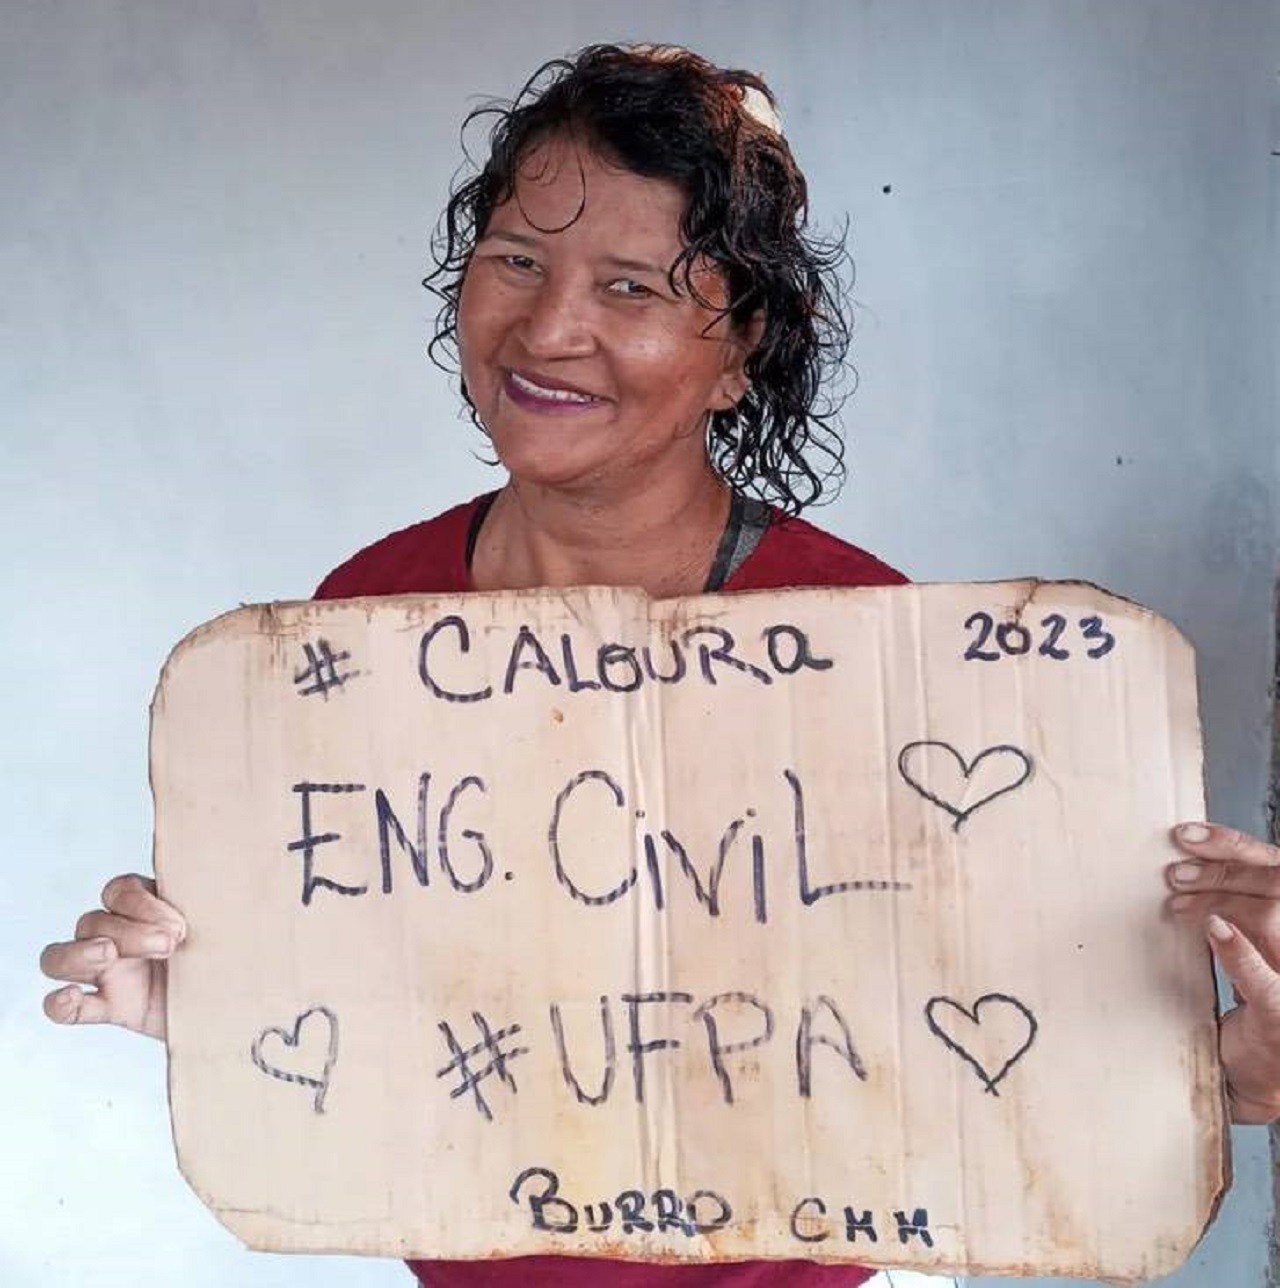 # CALOURa 2023
ENG. CiViL
#UFPA
BURRO CMM